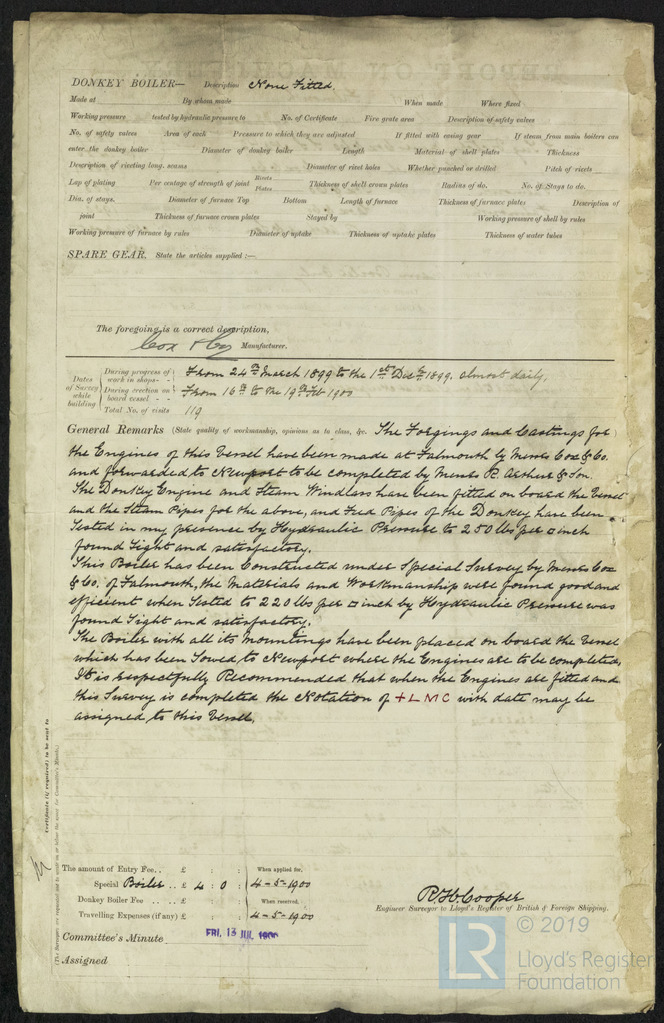 DONKEY BOILER— Description None Fitted.
Made at By whom made When made Where fixed
Working pressure tested by hydraulic pressure to No. of Certificate Fire grate area Description of safety valves
No. of safety valves Area of each Pressure to which they are adjusted If fitted with easing gear If steam from main boilers can
enter the donkey boiler Diameter of donkey boiler Length Material of shell plates Thickness
Description of riveting long. seams Diameter of rivet holes Whether punched or drilled Pitch of rivets
Lap of plating Per centage of strength of joint Rivets Plates Thickness of shell crown plates Radius of do. No. of Stays to do.
Dia. of stays. Diameter of furnace Top Bottom Length of furnace Thickness of furnace plates Description of
joint Thickness of furnace crown plates Stayed by Working pressure of shell by rules
Working pressure of furnace by rules Diameter of uptake Thickness of uptake plates Thickness of water tubes
SPARE GEAR. State the articles supplied :—
The foregoing is a correct description,
Cox & Co Manufacturer.
Dates of Survey while building
During progress of work in shops - - From 24th March 1899 to the 1st Decr 1899, almost daily.
During erection on board vessel - - From 16th to the 19th Feb 1900
Total No. of visits 119
General Remarks (State quality of workmanship, opinions as to class, &c. The Forgings and Castings for
the Engines of this Vessel have been made at Falmouth by Messrs Cox & Co.
and forwarded to Newport to be completed by Messrs R. Arthur & Son.
The Donkey Engine and Steam Windlass have been fitted on board the Vessel
and the Steam Pipes for the above, and Feed Pipes of the Donkey have been
Tested in my presence by Hydraulic Pressure to 250 lbs per □ inch
found tight and satisfactory.
This Boiler has been Constructed under Special Survey by Messrs Cox
& Co. of Falmouth, the Materials and Workmanship were found good and
efficient when Tested to 220 lbs per □ inch by Hydraulic Pressure was
found tight and satisfactory.
The Boiler with all its mountings have been placed on board the Vessel
which has been Towed to Newport where the Engines are to be completed,
It is respectfully Recommended that when the Engines are fitted and
this Survey is completed the Notation of + L M C with date may be
assigned to this Vessel.
Certificate (if required) to be sent to
The amount of Entry Fee.. £ : : When applied for,
Special Boiler .. £ 4 : 0 : 4-5-1900
Donkey Boiler Fee .. .. £ : : When received,
Travelling Expenses (if any) £ : : 4-5-1900
R. H. Cooper
Engineer Surveyor to Lloyd's Register of British & Foreign Shipping.
Committee's Minute FRI. 13 JUL 1900
Assigned
© 2019
LR
Lloyd's Register
Foundation